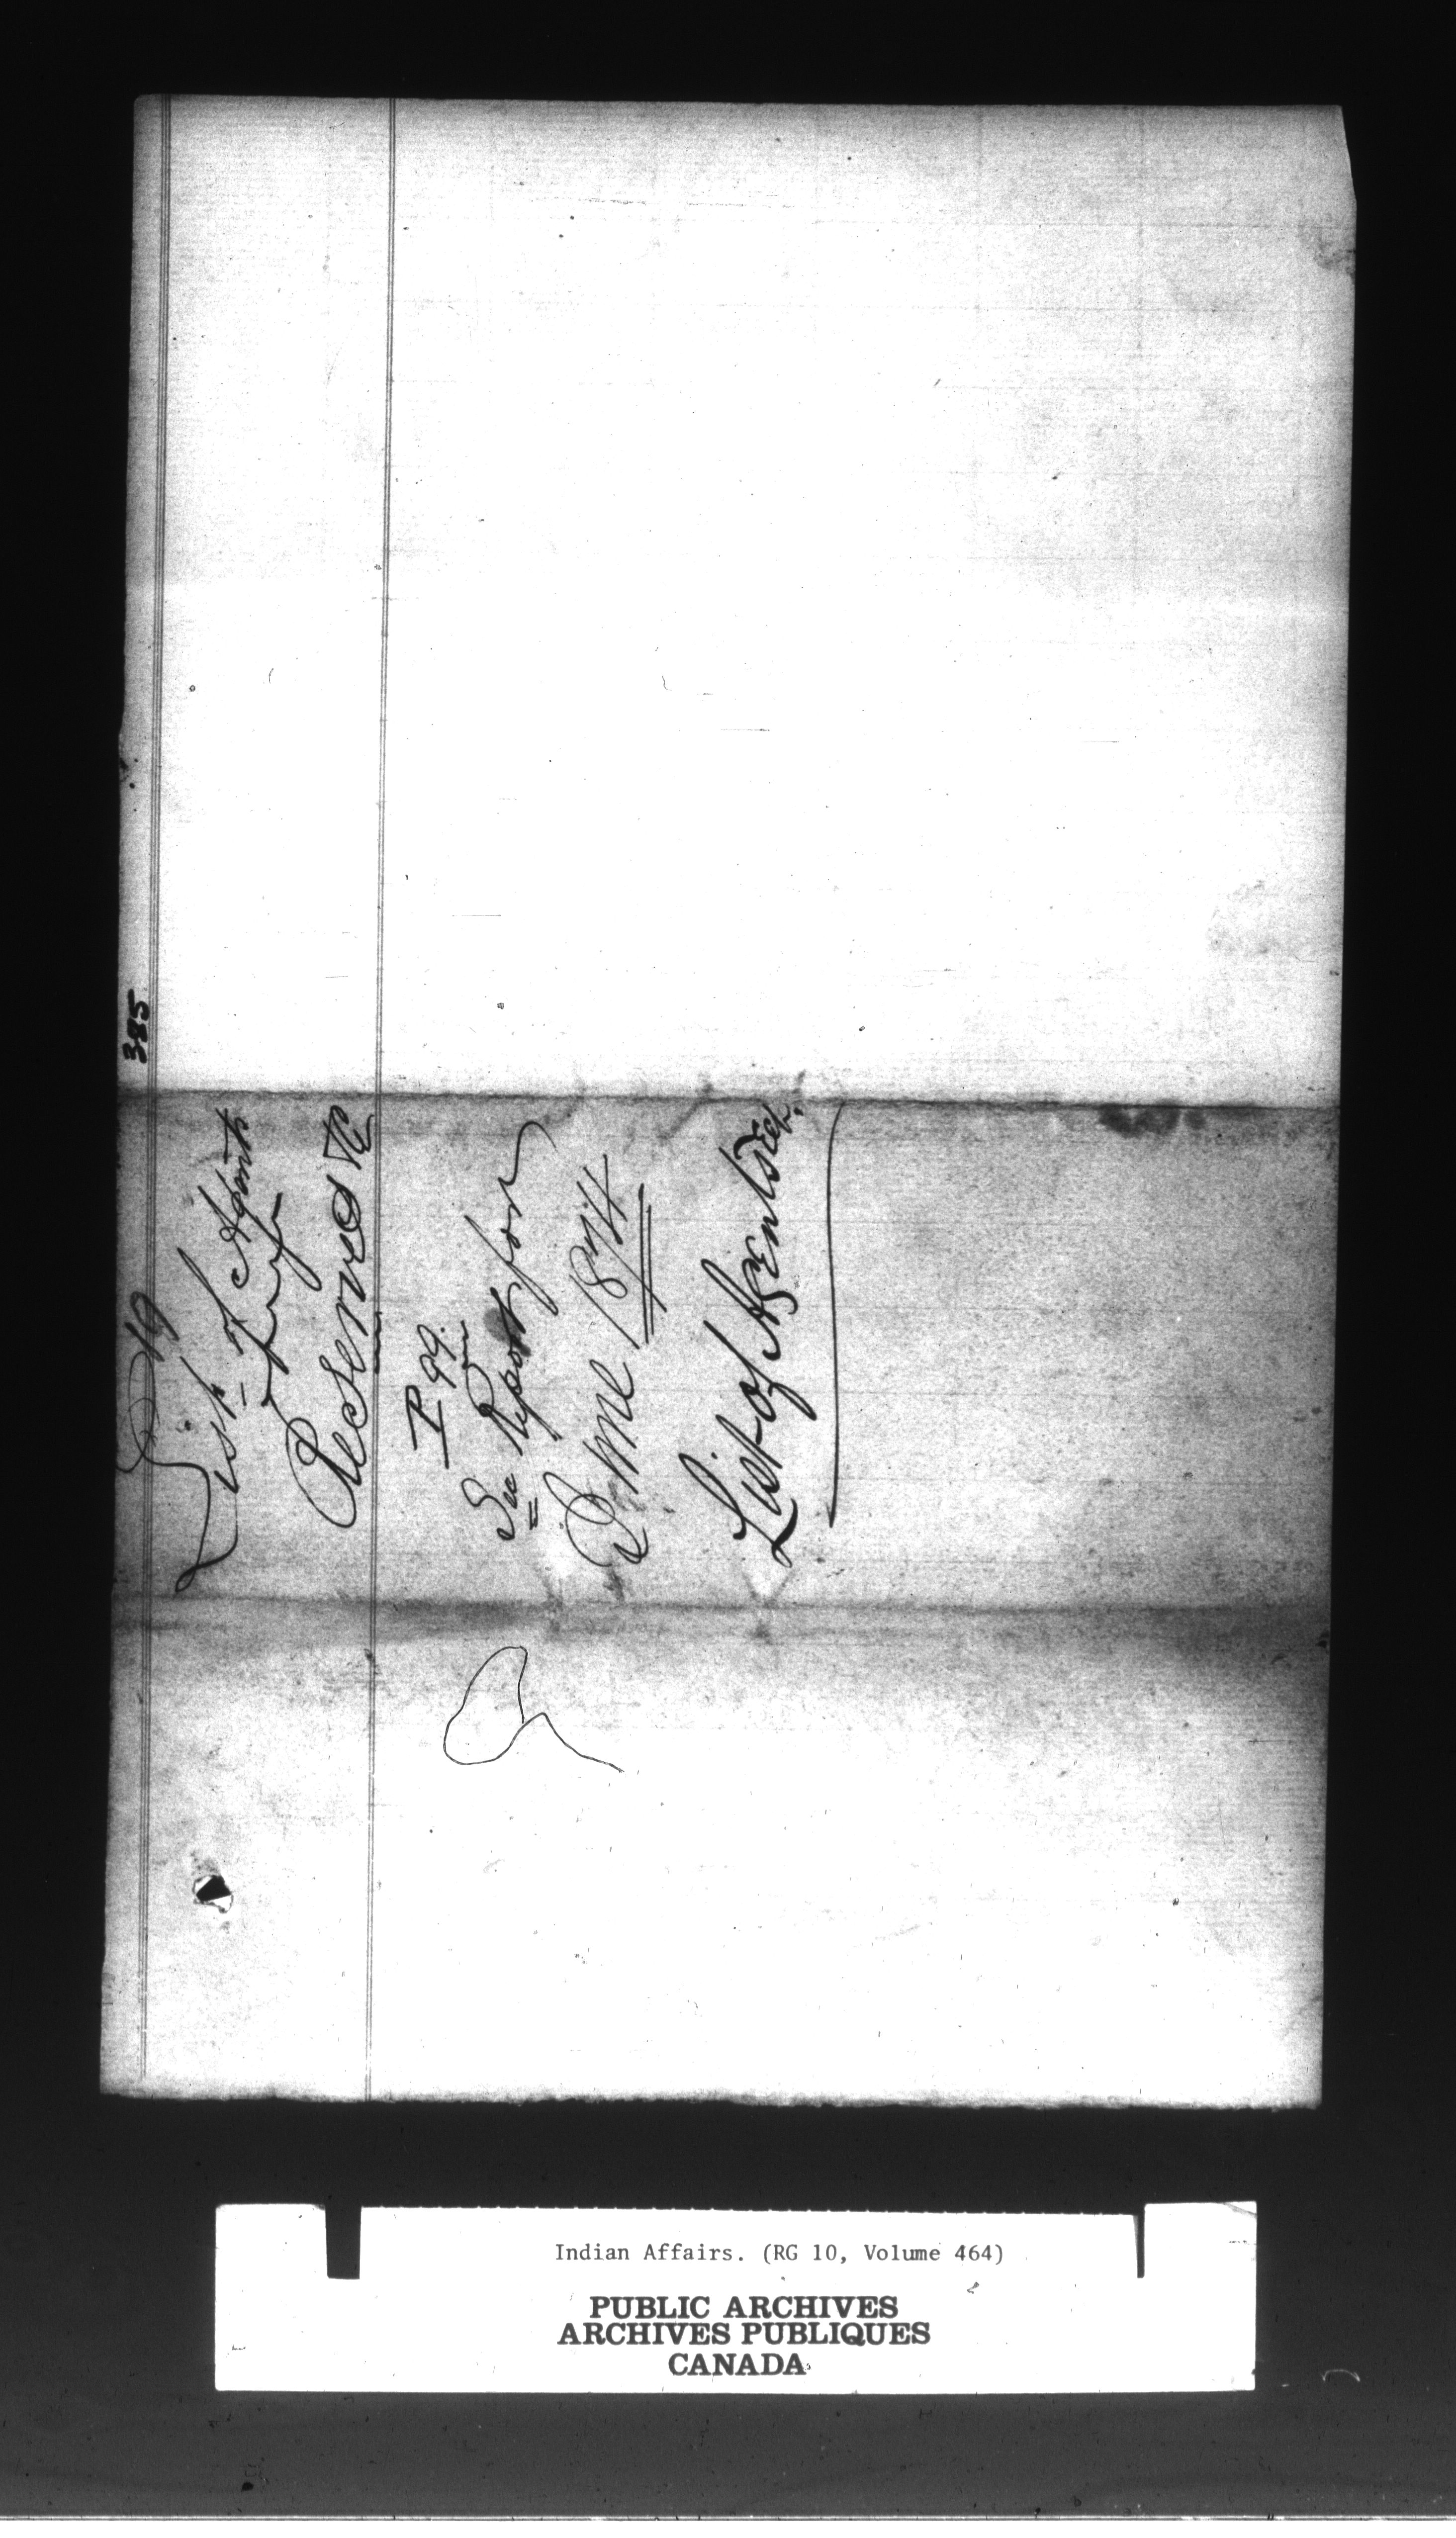 385
19
List of Agents
for
Reserves &c
P 99.
See Report for
1874
List of Agents &c
Indian Affairs. (RG 10, Volume 464)
PUBLIC ARCHIVES
ARCHIVES PUBLIQUES
CANADA